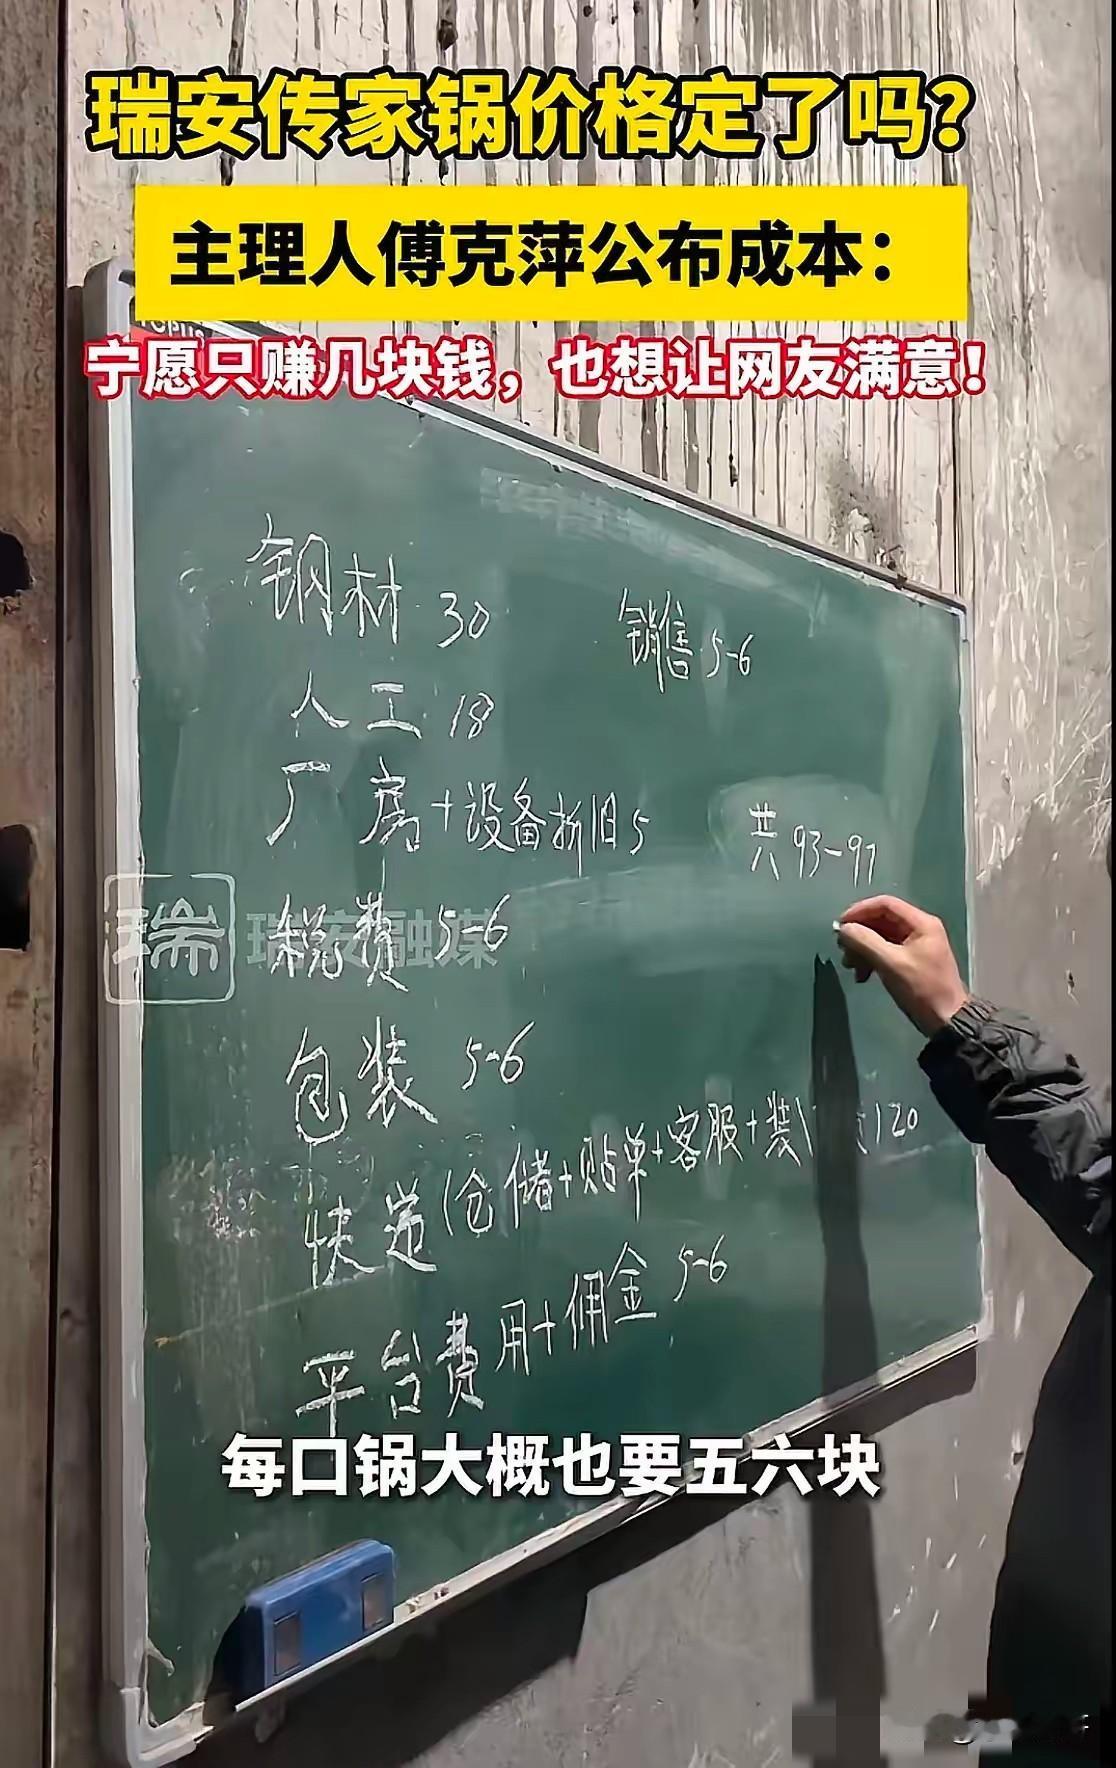 瑞安传家锅价格定了吗？
主理人傅克萍公布成本：
宁愿只赚几块钱，也想让网友满意！
钢材 30
销售 5-6
人工 18
厂房+设备折旧 5
共 93-97
税费 5-6
瑞
瑞安融媒
包装 5-6
快递(仓储+贴单+客服+装 20
平台费用+佣金 5-6
每口锅大概也要五六块